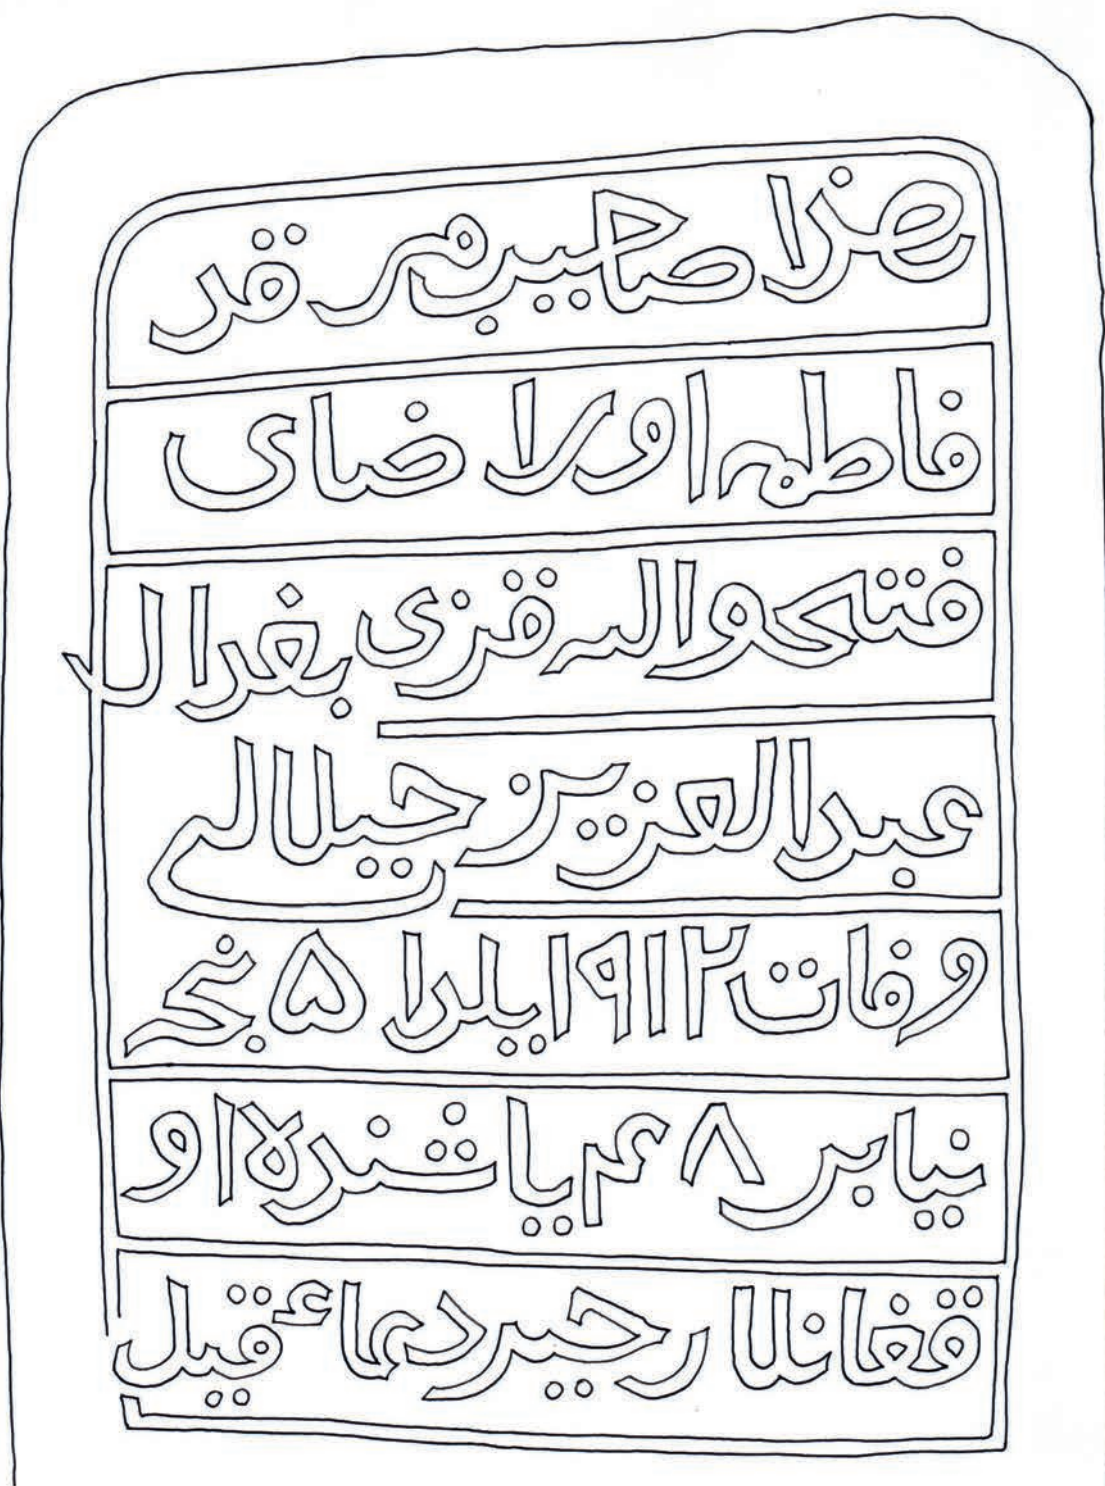 هذا صاحیب مرقد
فاطمه اورا ضای
فتتحوالہ قزی بغدال
عبدالعزیز حیلالی
وفات ۱۹۱۲ ایلدا ۵ نجی
نیابر ۴۸ یاشنده او
قغانلار حیر دعاء قیل